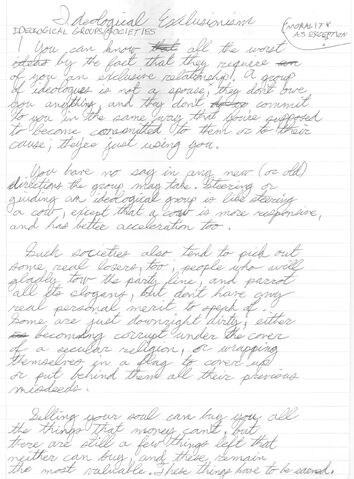 Ideological Exclusionism
IDEOLOGICAL GROUPS/SOCIETIES
(MORALITY
AS EXCEPTION)
You can know that all the worst
by the fact that they require
of you an exclusive relationship. A group
of ideologues is not a spouse; they don't owe
you anything, and they don't commit
to you in the same way that you're supposed
to become committed to them or to their
cause; they're just using you.
You have no say in any new (or old)
directions the group may take. Steering or
guiding an ideological group is like steering
a cow, except that a cow is more responsive,
and has better acceleration too.
Such societies also tend to pick out
some real losers, too; people who will
gladly tow the party line, and parrot
all its slogans, but don't have any
real personal merit to speak of.
Some are just downright dirty, either
becoming corrupt under the cover
of a secular religion, or wrapping
themselves in a flag to cover up
or put behind them all their previous
misdeeds.
Selling your soul can buy you all
the things that money can't, but
there are still a few things left that
neither can buy, and these remain
the most valuable. These things have to be earned.